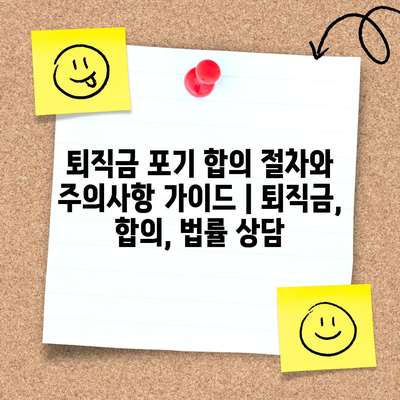 퇴직금 포기 합의 절차와
주의사항 가이드 | 퇴직금,
합의, 법률 상담